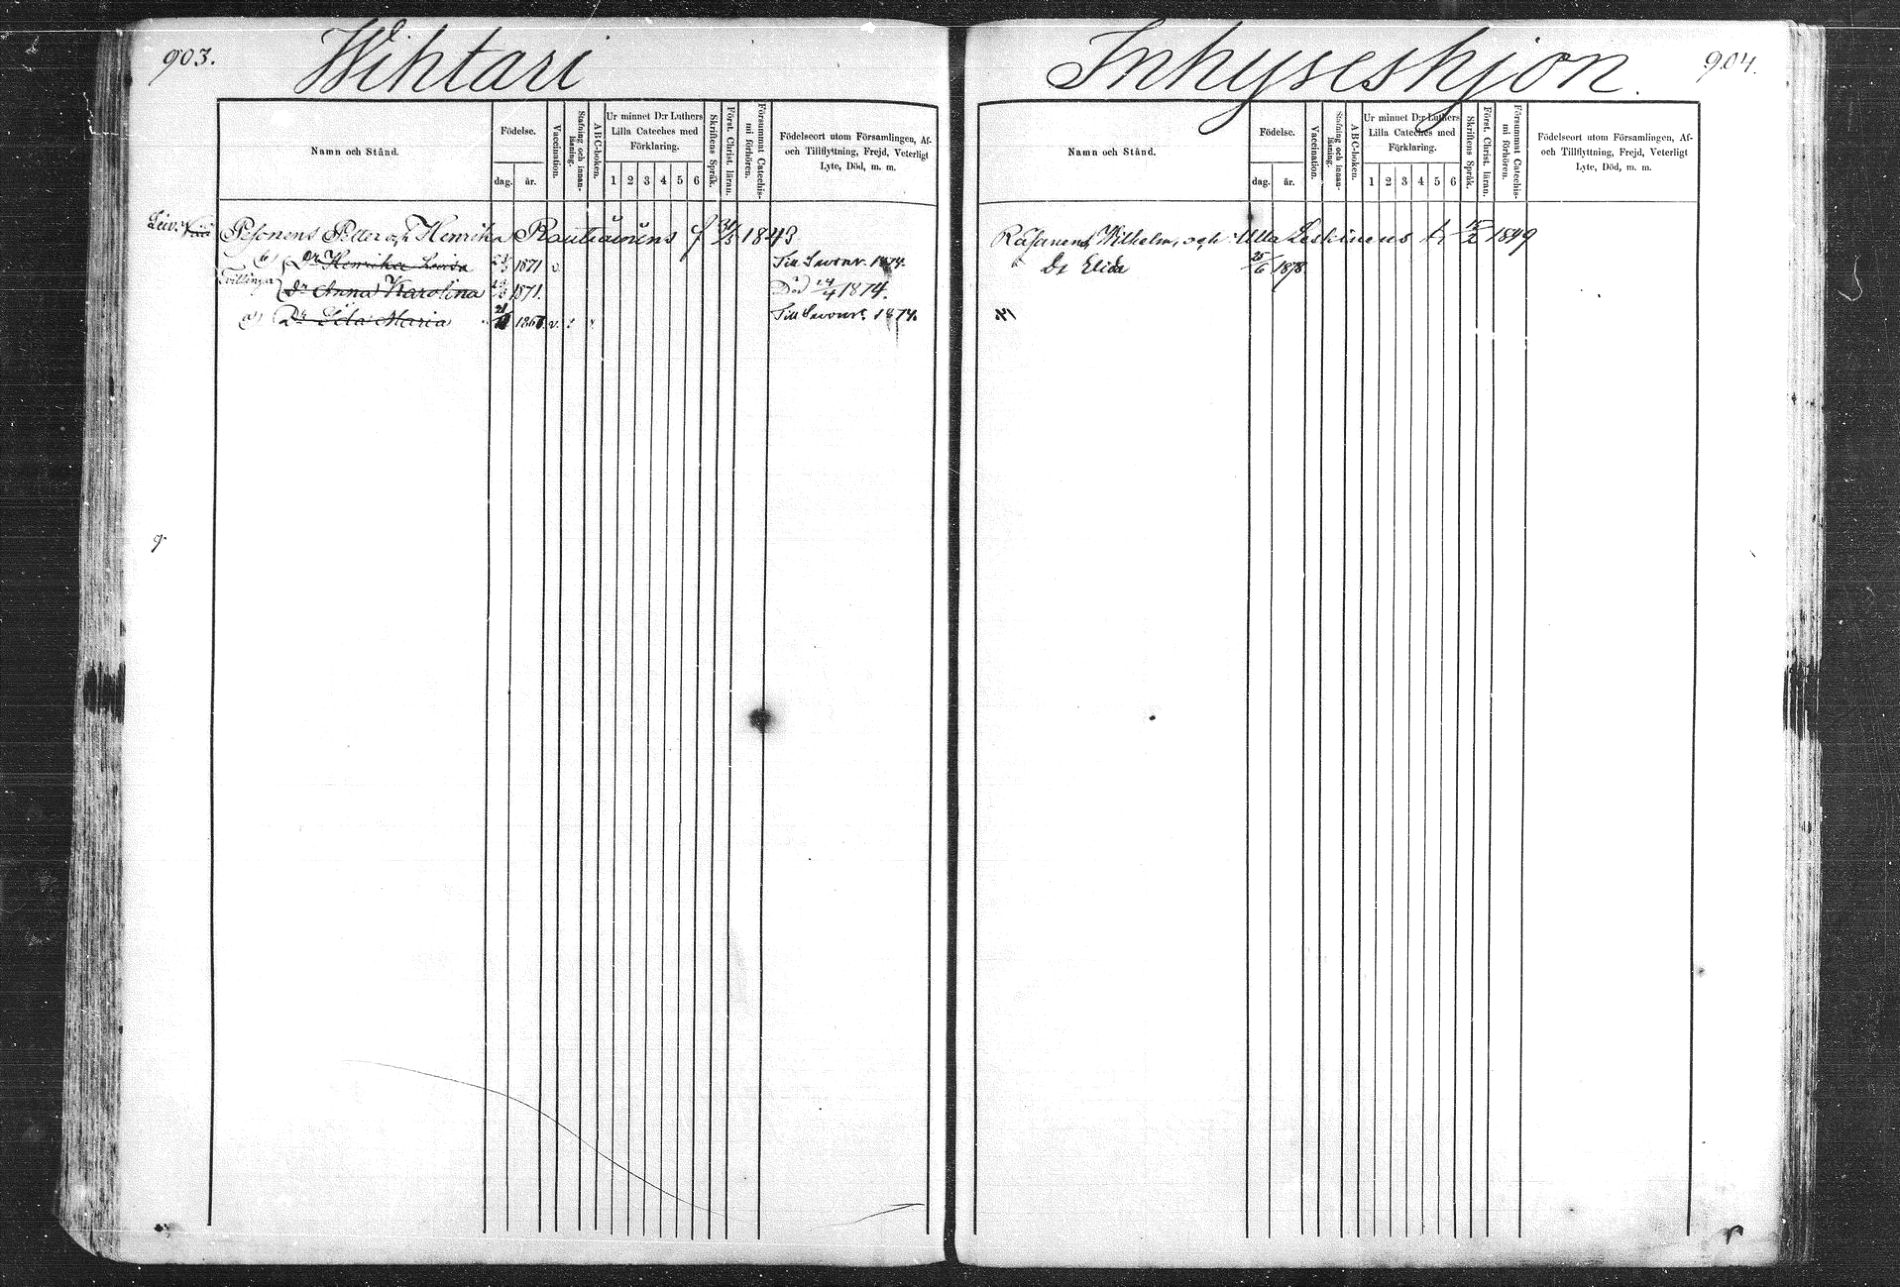 903.
Wihtari
Namn och Stånd.
Födelse.
dag.
år.
Vaccination.
Stafning och innan-
läsning.
A B C-boken.
Ur minnet D:r Luthers
Lilla Cateches med
Förklaring.
1 2 3 4 5 6
Skriftens Språk.
Först. Christ. läran.
Försummat Catechis-
mi förhören.
Födelseort utom Församlingen, Af-
och Tillflyttning, Frejd, Veterligt
Lyte, Död, m. m.
Pesonens Petter och Henrika Rautiainens f 1843
b) Dr Henrika Lovisa 1871 v. Till Savonr. 1874.
Tvillingar
dr Anna Karolina 1871. Död 24/4 1874.
a) Dr Maria 21 186 v. Till Savonr. 1874.
904.
Inhyseshjon.
Namn och Stånd.
Födelse.
dag.
år.
Vaccination.
Stafning och innan-
läsning.
A B C-boken.
Ur minnet D:r Luthers
Lilla Cateches med
Förklaring.
1 2 3 4 5 6
Skriftens Språk.
Först. Christ. läran.
Försummat Catechis-
mi förhören.
Födelseort utom Församlingen, Af-
och Tillflyttning, Frejd, Veterligt
Lyte, Död, m. m.
Räsänens Wilhelm, och Ulla Leskinens 15/2 1849
Dr Elida 25/6 1878.